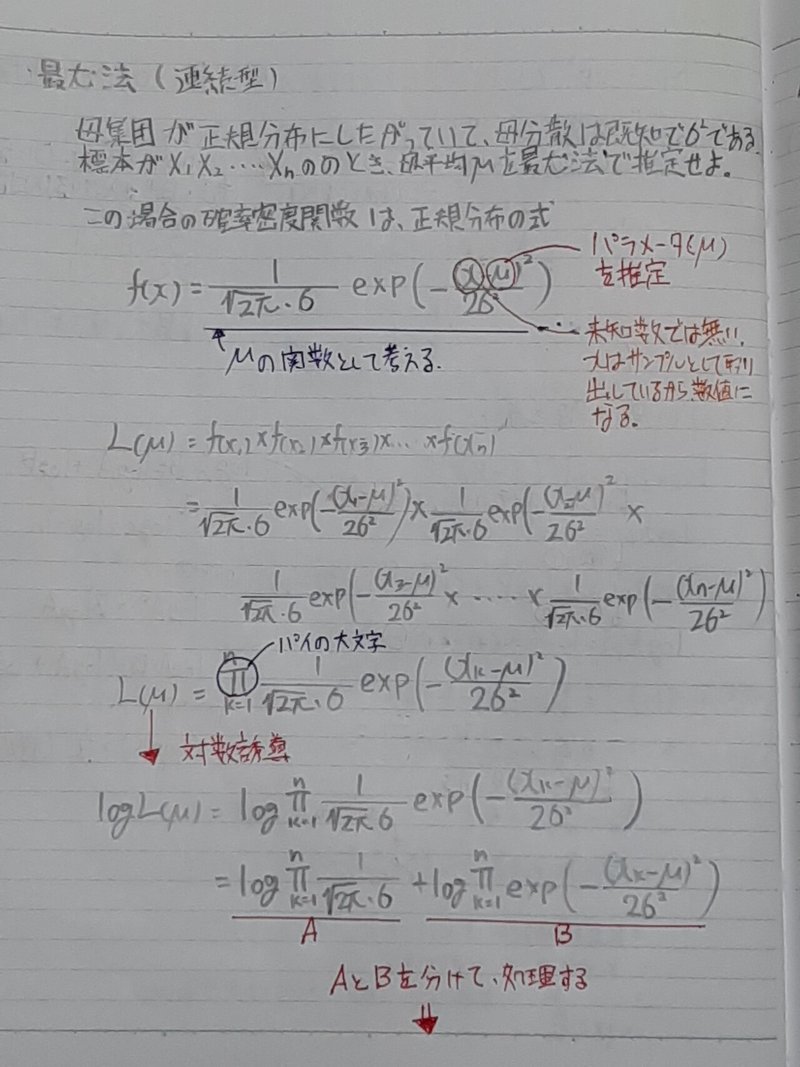 最尤法(連結型)
母集団が正規分布にしたがっていて、母分散は既知でσ²である。
標本がx₁ x₂ ‥‥ xₙののとき、母平均μを最尤法で推定せよ。
この場合の確率密度関数は、正規分布の式
f(x) = 1/(√2π・σ) exp(-(x-μ)²/2σ²)
パラメータ(μ)
を推定
未知数では無い、
xはサンプルとして取り
出しているから数値に
なる。
μの関数として考える。
L(μ) = f(x₁)×f(x₂)×f(x₃)×‥×f(xₙ)
= 1/(√2π・σ) exp(-(x₁-μ)²/2σ²)× 1/(√2π・σ) exp(-(x₂-μ)²/2σ² ×
1/(√2π・σ) exp(-(x₃-μ)²/2σ² × ‥‥‥ × 1/(√2π・σ) exp(-(xₙ-μ)²/2σ²)
パイの大文字
L(μ) = n Π k=1 1/(√2π・σ) exp(-(xₖ-μ)²/2σ²)
対数
logL(μ) = log n Π k=1 1/(√2π σ) exp(-(xₖ-μ)²/2σ²)
= log n Π k=1 1/(√2π・σ) + log n Π k=1 exp(-(xₖ-μ)²/2σ²)
A B
AとBを分けて、処理する